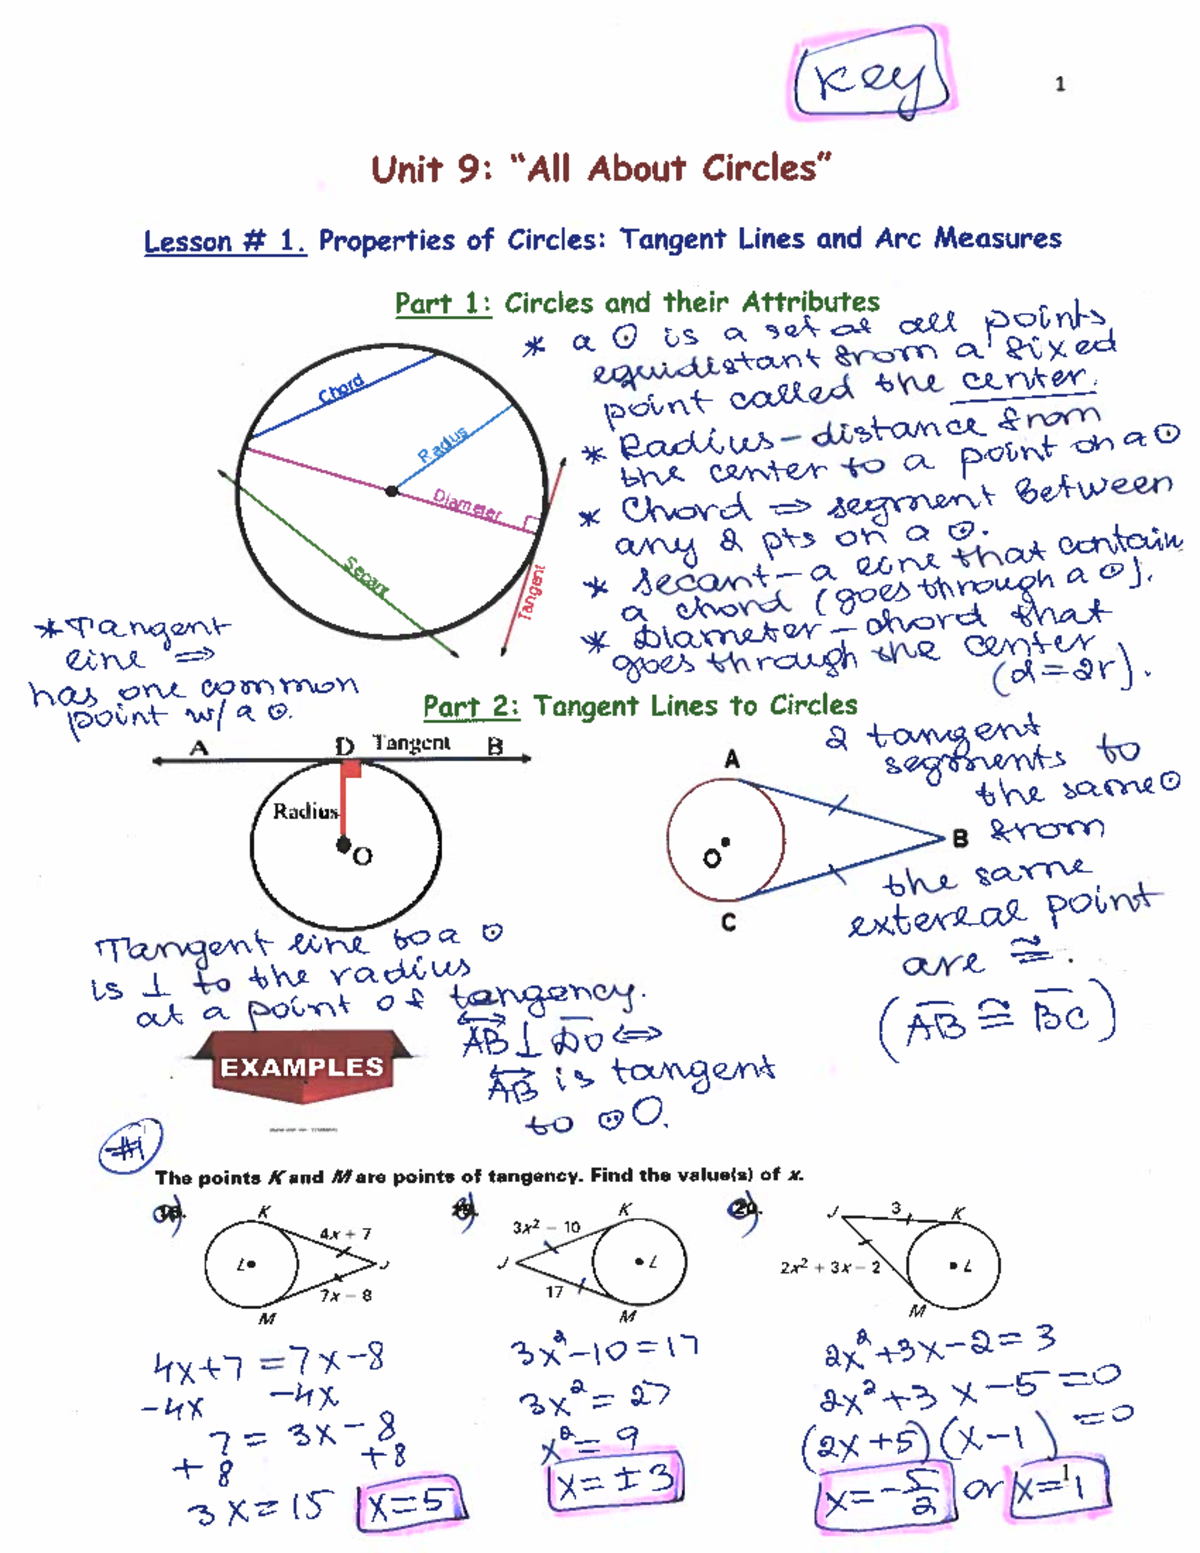 Key
1
Unit 9: “All About Circles”
Lesson # 1. Properties of Circles: Tangent Lines and Arc Measures
Part 1: Circles and their Attributes
Chord
Radius
Diameter
Secant
Tangent
* a ⊙ is a set of all points
equidistant from a fixed
point called the center.
* Radius - distance from
the center to a point on a ⊙
* Chord ⇒ segment between
any 2 pts on a ⊙.
* Secant - a line that contain
a chord (goes through a ⊙).
* Diameter - chord that
goes through the center
(d=2r).
* Tangent
line ⇒
has one common
point w/ a ⊙.
Part 2: Tangent Lines to Circles
A D Tangent B
Radius
O
Tangent line to a ⊙
is ⊥ to the radius
at a point of tangency.
AB ⊥ DO ⇔
AB is tangent
to ⊙O.
A
O
B
C
2 tangent
segments to
the same ⊙
from
the same
extereal point
are ≅.
(AB ≅ BC)
EXAMPLES
#1
The points K and M are points of tangency. Find the value(s) of x.
a)
K
4x + 7
L
J
7x − 8
M
4x+7=7x-8
-4x -4x
7 = 3x-8
+8 +8
3x=15 x=5
K
3x² − 10
J
L
17
M
3x²-10=17
3x²=27
x²=9
x=±3
c) 20.
J 3 K
2x² + 3x − 2
L
M
2x²+3x-2=3
2x²+3x-5=0
(2x+5)(x-1)=0
x=-5/2 or x=1
1